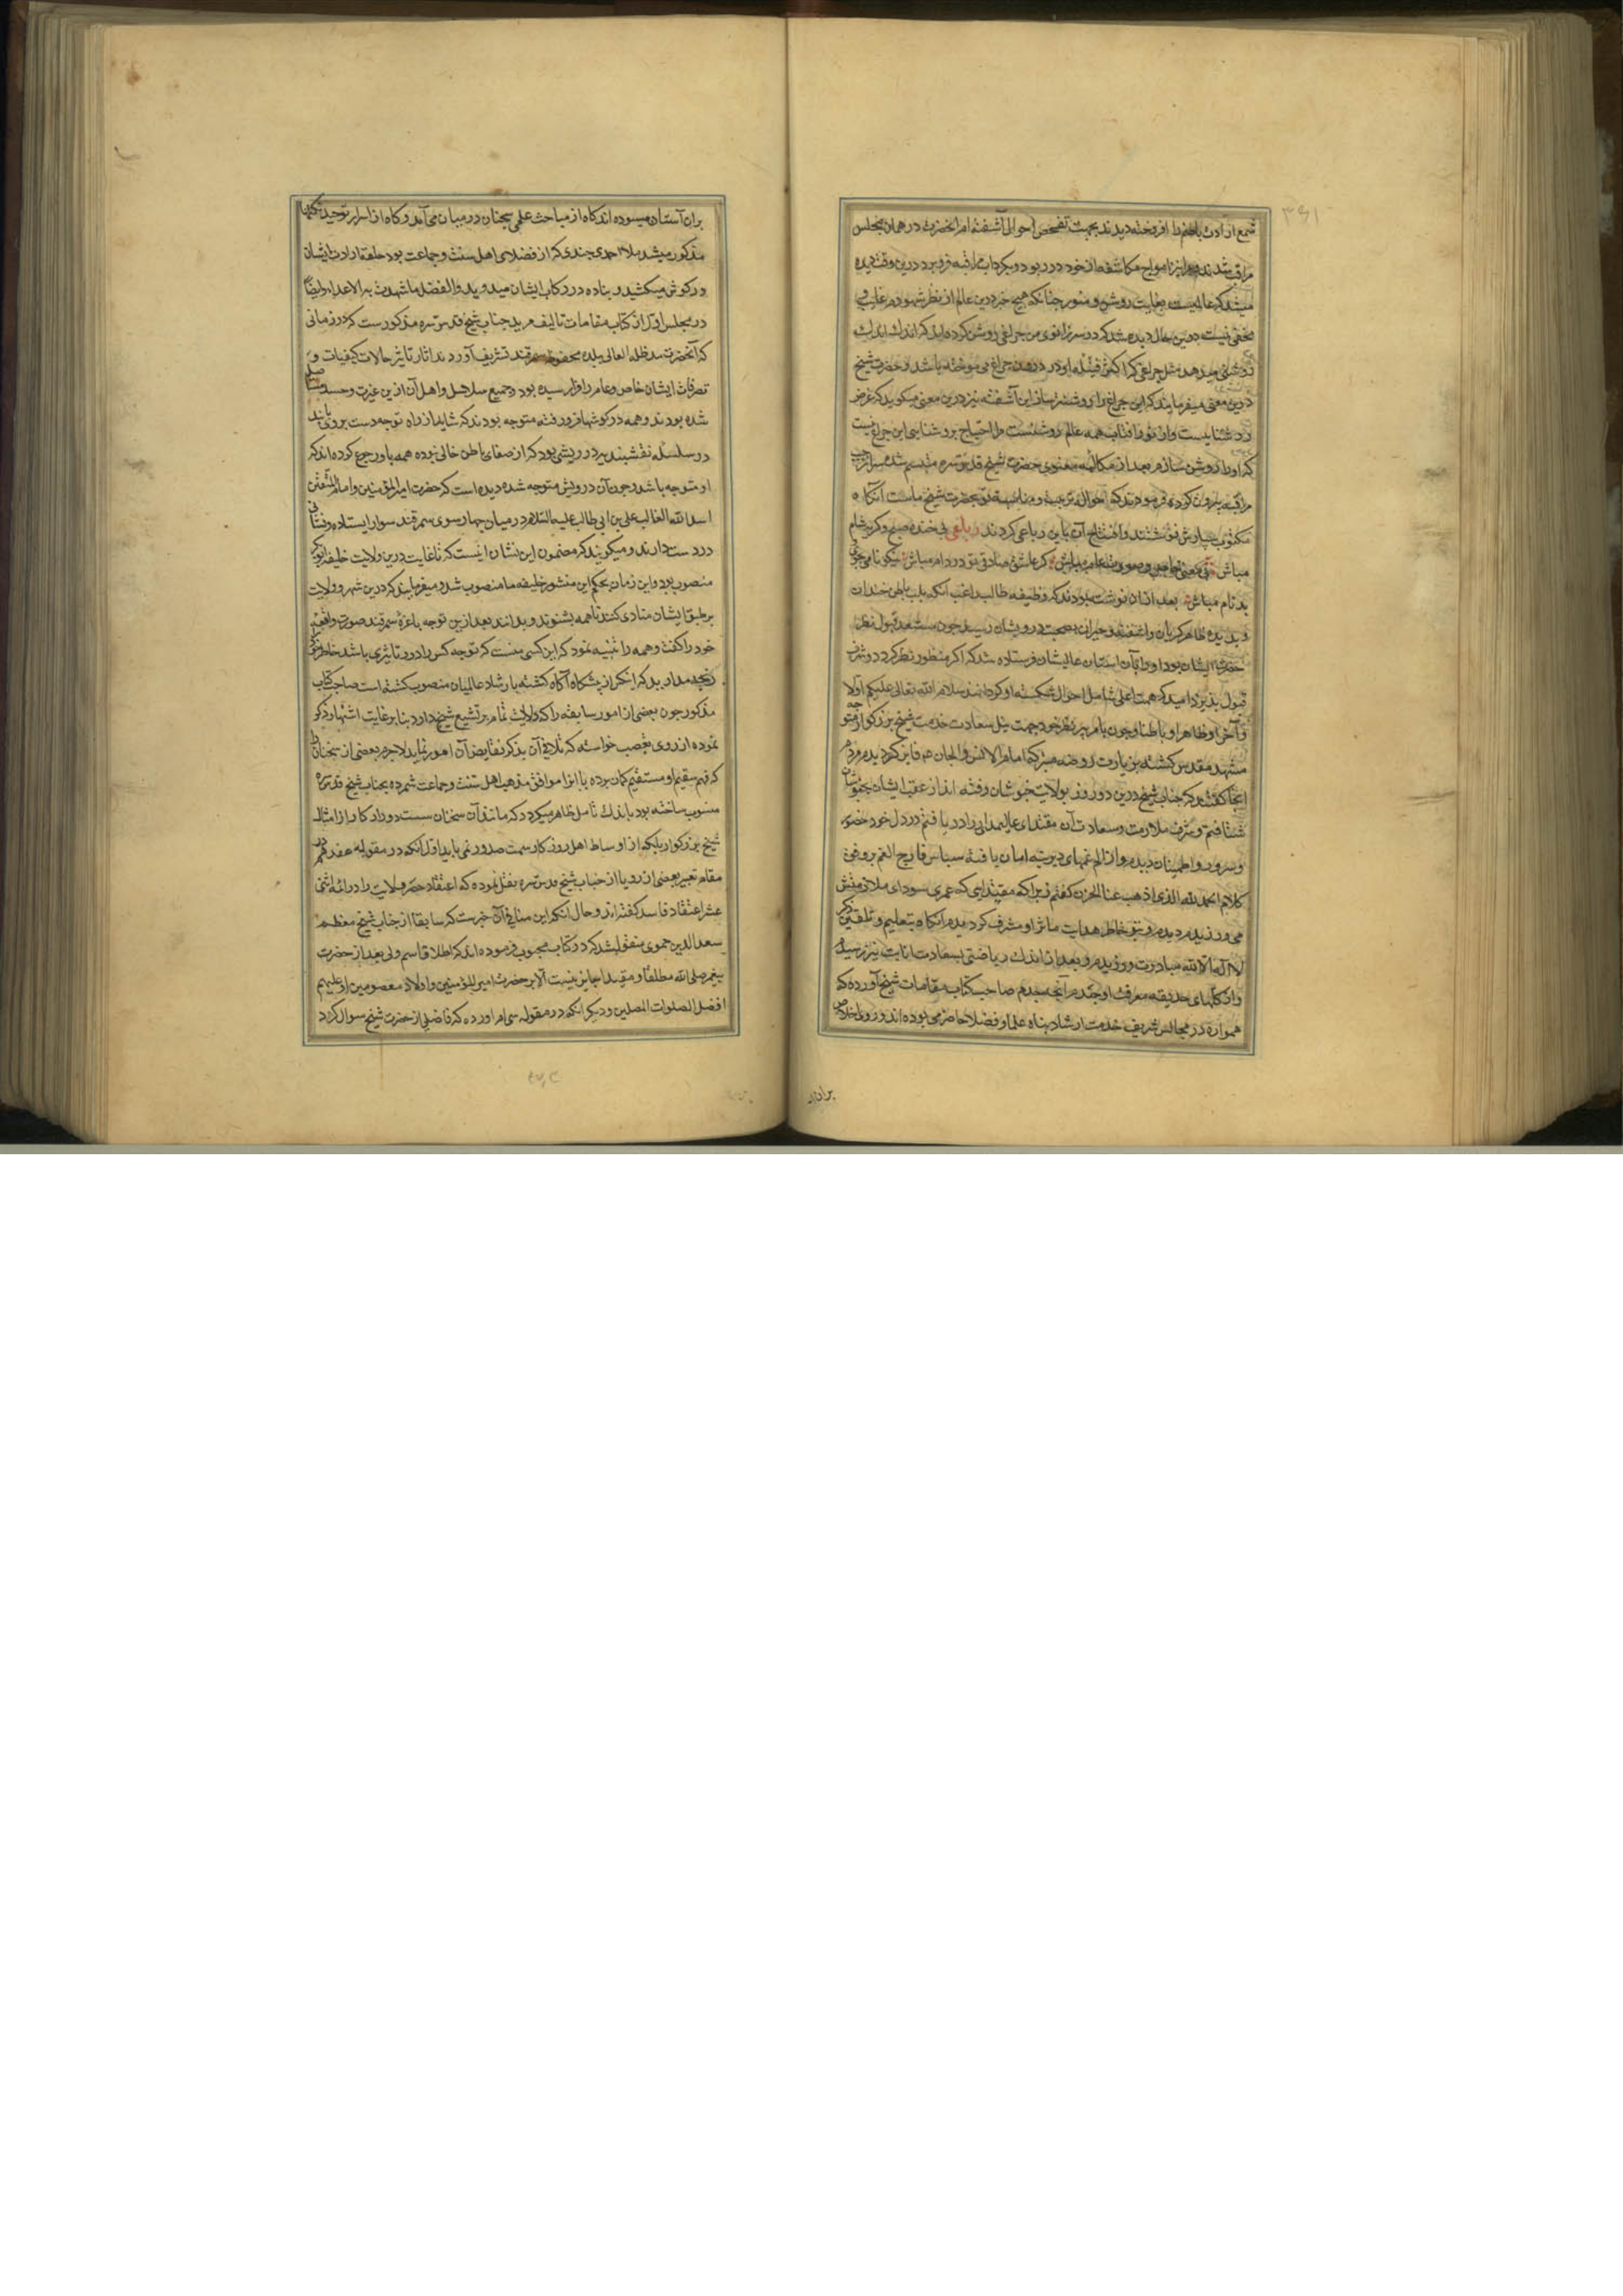 ۳۶۱
شمع ارادت باطنم را افروخته دیدند بجهت تفحص احوال آشفته ام انحضرت در همان مجلس
مراقب شدند مکاشفه از خود در ربود و بکرداب مراقبه فرو برد درین وقت دیده
میشد که عالمیست بغایت روشن و منور چنانکه هیچ خبر درین عالم از نظر شهودم غایب و
مخفی نیست درین حال دیده شد که در سر زانوی من چراغی روشن کرده اند که اندک اندک
روشنی میدهد مثل چراغی که اکثر فتیله او در دهن چراغ می سوخته باشد و حضرت شیخ
درین معنی میفرمایند که این چراغ را روشنتر ساز این آشفته نیز درین معنی میکوید که غرض
روشناییست و از نور افتاب همه عالم روشنست مرا احتیاج بروشنایی این چراغ نیست
که او را روشن سازم بعد از مکالمه معنوی حضرت شیخ قدس سره متبسم شده سر از جیب
مراقبه بیرون کردند فرمودند که حواله تربیت و مناسبت تو بحضرت شیخ ماست انکاه
مکتوب سپارش نوشتند و افتتاح آن باین رباعی کردند رباعی بی خنده صبح و کریه شام
مباش بی معنی خاص و صورت عام مباش کر عاشق صادقی تو در دام مباش نیکو نامی مجوی
بدنام مباش بعد از ان نوشته بودند که وظیفه طالب راغب انکه بلب باطن خندان
و بدیده ظاهر کریان و اشفته و حیران بصحبت درویشان رسد چون مستعد قبول نظر
حضرت ایشان بود او را بآن استان عالیشان فرستاده شد که اکر منظور نظر کردد و شرف
قبول پذیرد امید که همت اعلی شامل احوال شکسته او کردانند سلام الله تعالی علیکم اولا
و آخرا و ظاهرا و باطنا و چون بامر پیر بزرکوار خود جهت نیل سعادت خدمت شیخ بزرکوار متوجه
مشهد مقدس کشته بزیارت روضه متبرکه امام الانس و الجان هم فایز کردیدم مردم
انجا کفتند که جناب شیخ درین دو روز بولایت خبوشان رفته اند از عقب ایشان بخبوشان
شتافتم و شرف ملازمت و سعادت آن مقتدای عالیمقدار را دریافتم در دل خود حضور
و سرور و اطمینان دیدم و از الم غمهای دیرینه امان یافته سپاس فارج الغم بر وفق
کلام الحمد لله الذی اذهب عنا الحزن کفتم زیرا که مقتدایی که عمری سودای ملازمتش
می ورزیدم دیدم و بتوجه خاطر هدایت ماثر او مشرف کردیدم انکاه بتعلیم و تلقین ذکر
لا اله الا الله مبادرت ورزیدم و بعد از اندک ریاضتی بسعادت انابت نیز رسیدم
و از کلهای حدیقه معرفت او چیدم آنچه چیدم صاحب کتاب مقامات شیخ آورده که
همواره در مجالس شریف خدمت ارشاد پناه علما و فضلا حاضر می بوده اند و روی اخلاص
بران آس
بران آستان میسوده اند کاه از مباحث علمی سخنان در میان می آمد و کاه از اسرار توحید نکات
مذکور میشد ملا احمدی جندی که از فضلای اهل سنت و جماعت بود حلقه ارادت ایشان
در کوش میکشید و پیاده در رکاب ایشان میدوید و الفضل ما شهدت به الاعداء و ایضا
در مجلس اول از کتاب مقامات تالیف مرید جناب شیخ قدس سره مذکورست که در زمانی
که آنحضرت مد ظله العالی ببلده محفوظه سمرقند تشریف آوردند اثار تاثیر حالات کیفیات و
تصرفات ایشان خاص و عام را فرا رسیده بود و جمیع سلاسل و اهل آن ازین غیرت و حسد
شده بودند و همه در کوشها فرو رفته متوجه بودند که شاید از راه توجه دست بروی یابند
در سلسله نقشبندیه درویشی بود که از صفای باطن خالی نبوده همه باو رجوع کرده اند که
او متوجه باشد چون آن درویش متوجه شده دیده است که حضرت امیر المؤمنین و امام المتقین
اسد الله الغالب علی بن ابی طالب علیه السلام در میان چهار سوی سمرقند سوار ایستاده و نشانی
در دست دارند و میکویند که مضمون این نشان اینست که تا غایت درین ولایت خلیفه ابوبکر
منصوب بود و این زمان بحکم این منشور خلیفه ما منصوب شد و میفرمایند که درین شهر و ولایت
بر طبق ایشان منادی کنند تا همه بشنوند و بدانند بعد ازین توجه باعزه سمرقند صورت واقعه
خود را کفت و همه را تنبیه نمود که این کسی نیست که توجه کس را درو تاثیری باشد خاطر خود
رنجه مدارید که اینکس از پیشکاه آکاه کشته بارشاد عالمیان منصوب کشته است صاحب کتاب
مذکور چون بعضی از امور سابقه را که دلالت تمام بر تشیع شیخ دارد بنابر غایت اشتهار ذکر
نموده از روی تعصب خواسته که تلافی آن بذکر نقایض آن امور نماید لاجرم بعضی از سخنان را
که فهم سقیم او مستقیم کمان برده یا انرا موافق مذهب اهل سنت و جماعت شمرده بجناب شیخ قدس سره
منسوب ساخته بود باندک تامل ظاهر میکردد که مانند آن سخنان سست دور از کار از امثال
شیخ بزرکوار بلکه از اوساط اهل روزکار سمت صدور نمی یابد اول آنکه در مقوله هفدهم در
مقام تعبیر بعضی از رویا از جناب شیخ قدس سره نقل نموده که اعتقاد حصر ولایت را در ائمه اثنی
عشر اعتقاد فاسد کفته اند و حال آنکه این منافی آن خبرست که سابقا از جناب شیخ معظم
سعد الدین حموی منقول شد که در کتاب محبوب فرموده اند که اطلاق اسم ولی بعد از حضرت
پیغمبر صلی الله مطلقا و مقیدا جایز نیست الا بر حضرت امیر المؤمنین و اولاد معصومین او علیهم
افضل الصلوات المصلین و دیکر انکه در مقوله سی ام اورده که فاضلی از حضرت شیخ سوال کرد